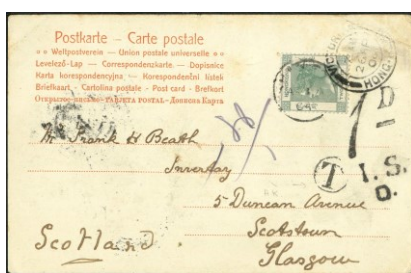 Postkarte – Carte postale
Weltpostverein – Union postale universelle
Levelező-Lap – Correspondenzkarte – Dopisnice
Karta korespondencyjna – Korespondenční lístek
Briefkaart – Cartolina postale – Post card – Brefkort
Открытое письмо – TARJETA POSTAL – Дописна Карта
VICTORIA
HONG
1 D
T I. S.
O.
Mr Frank H Beath
5 Duncan Avenue
Scotstoun
Scotland Glasgow